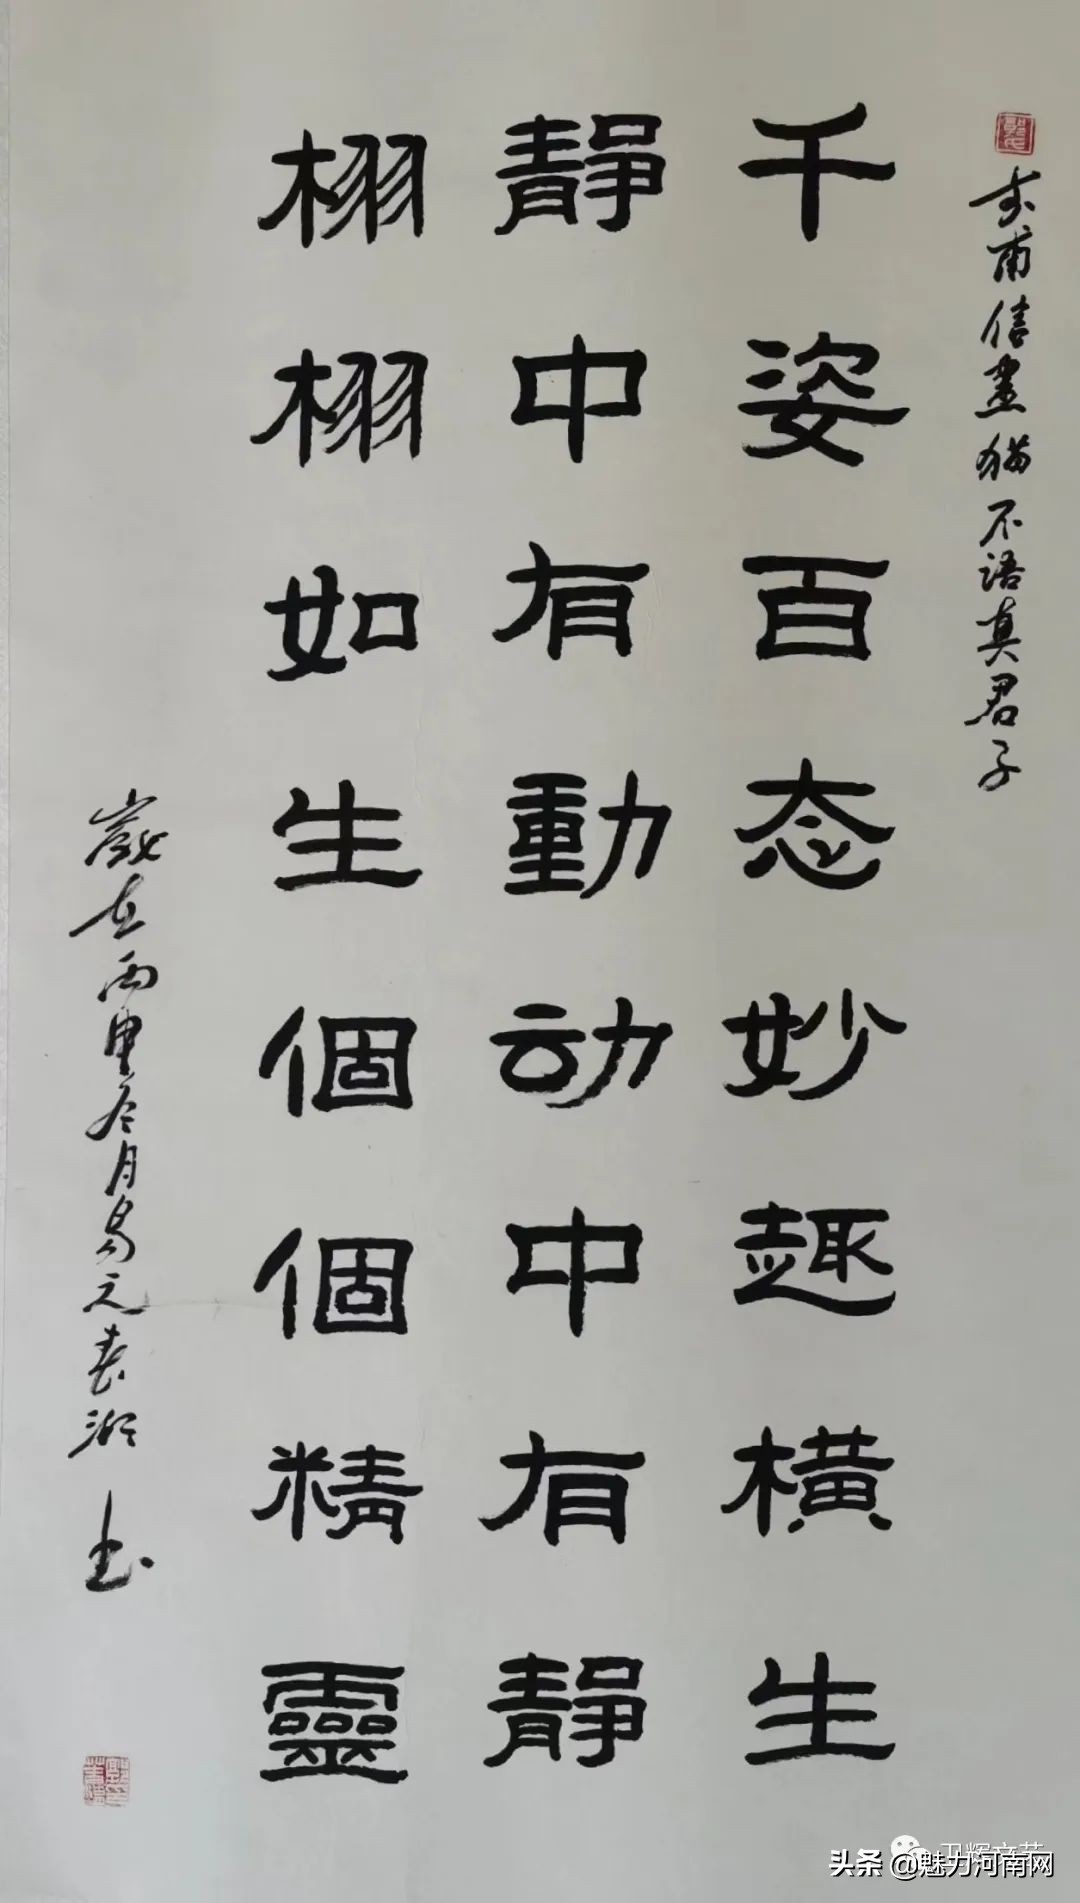 千姿百态妙趣横生
靜中有動动中有静
栩栩如生個個精靈
画猫不语真君子
歲在丙申冬月易元春湖书
头条 @魅力河南网
卫辉文艺